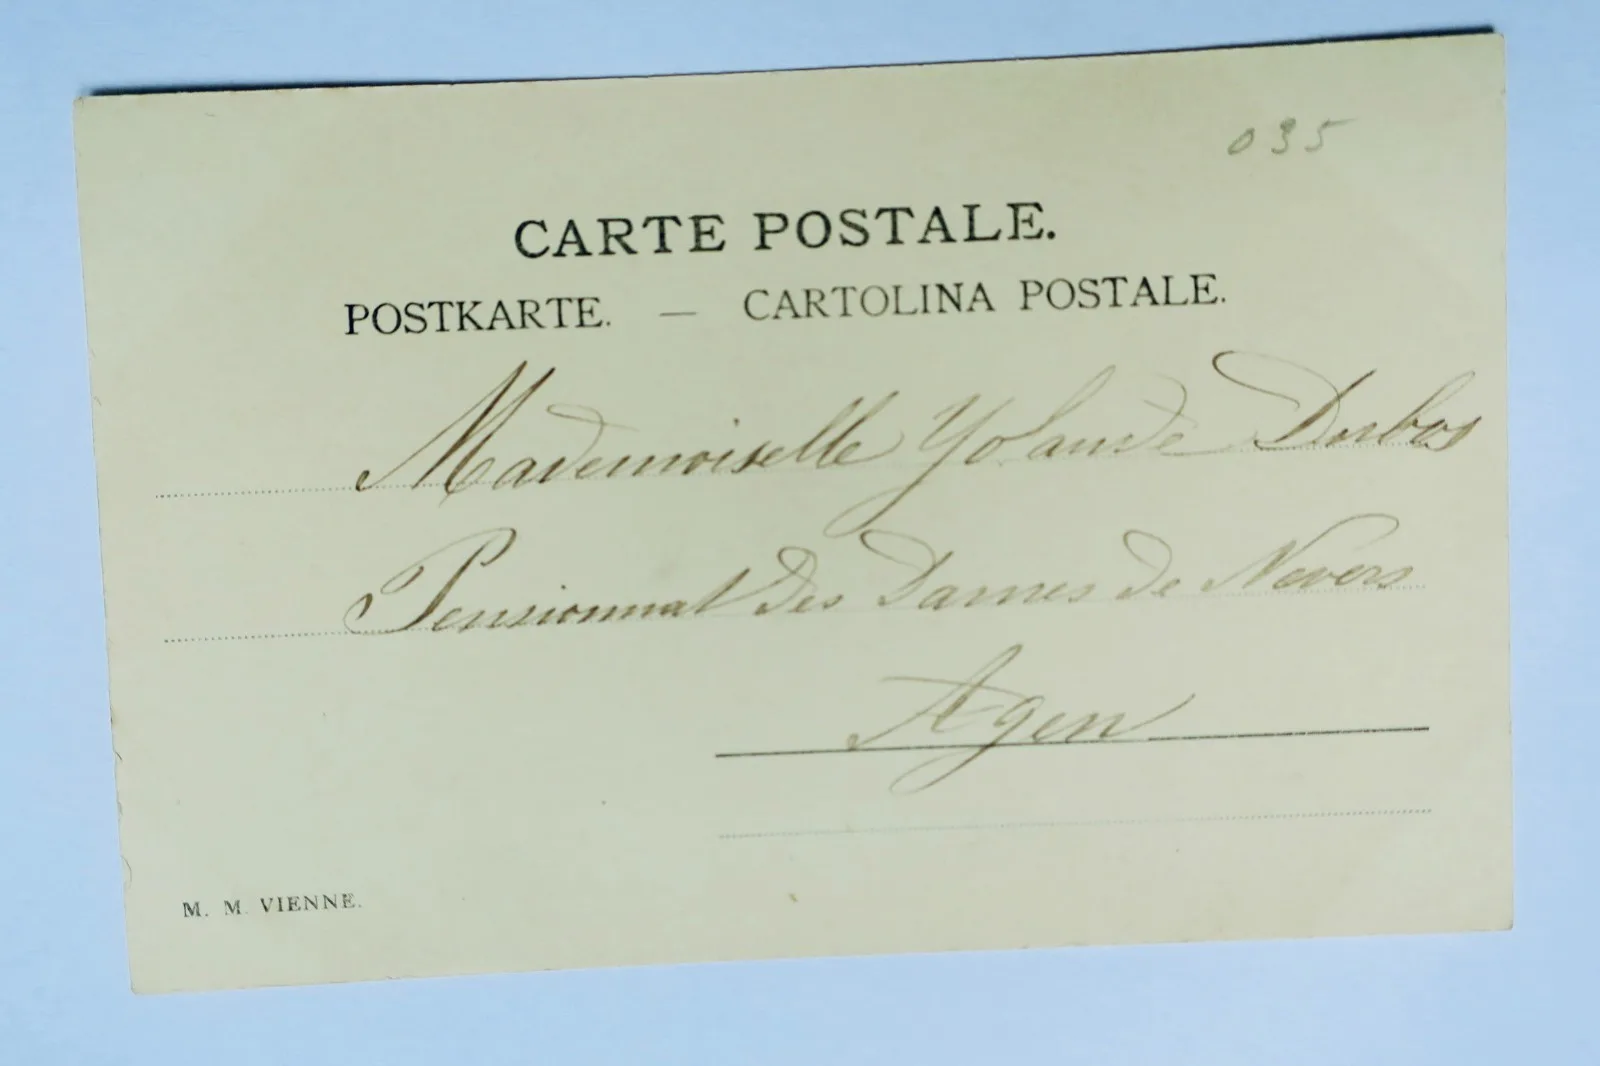 035
CARTE POSTALE.
POSTKARTE. — CARTOLINA POSTALE.
Mademoiselle Yolande Dubos
Pensionnat des Dames de Nevers
Agen
M. M. VIENNE.